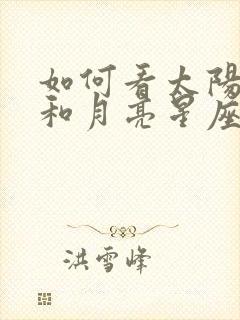 如何看太陽
和月亮星座
洪雪峰